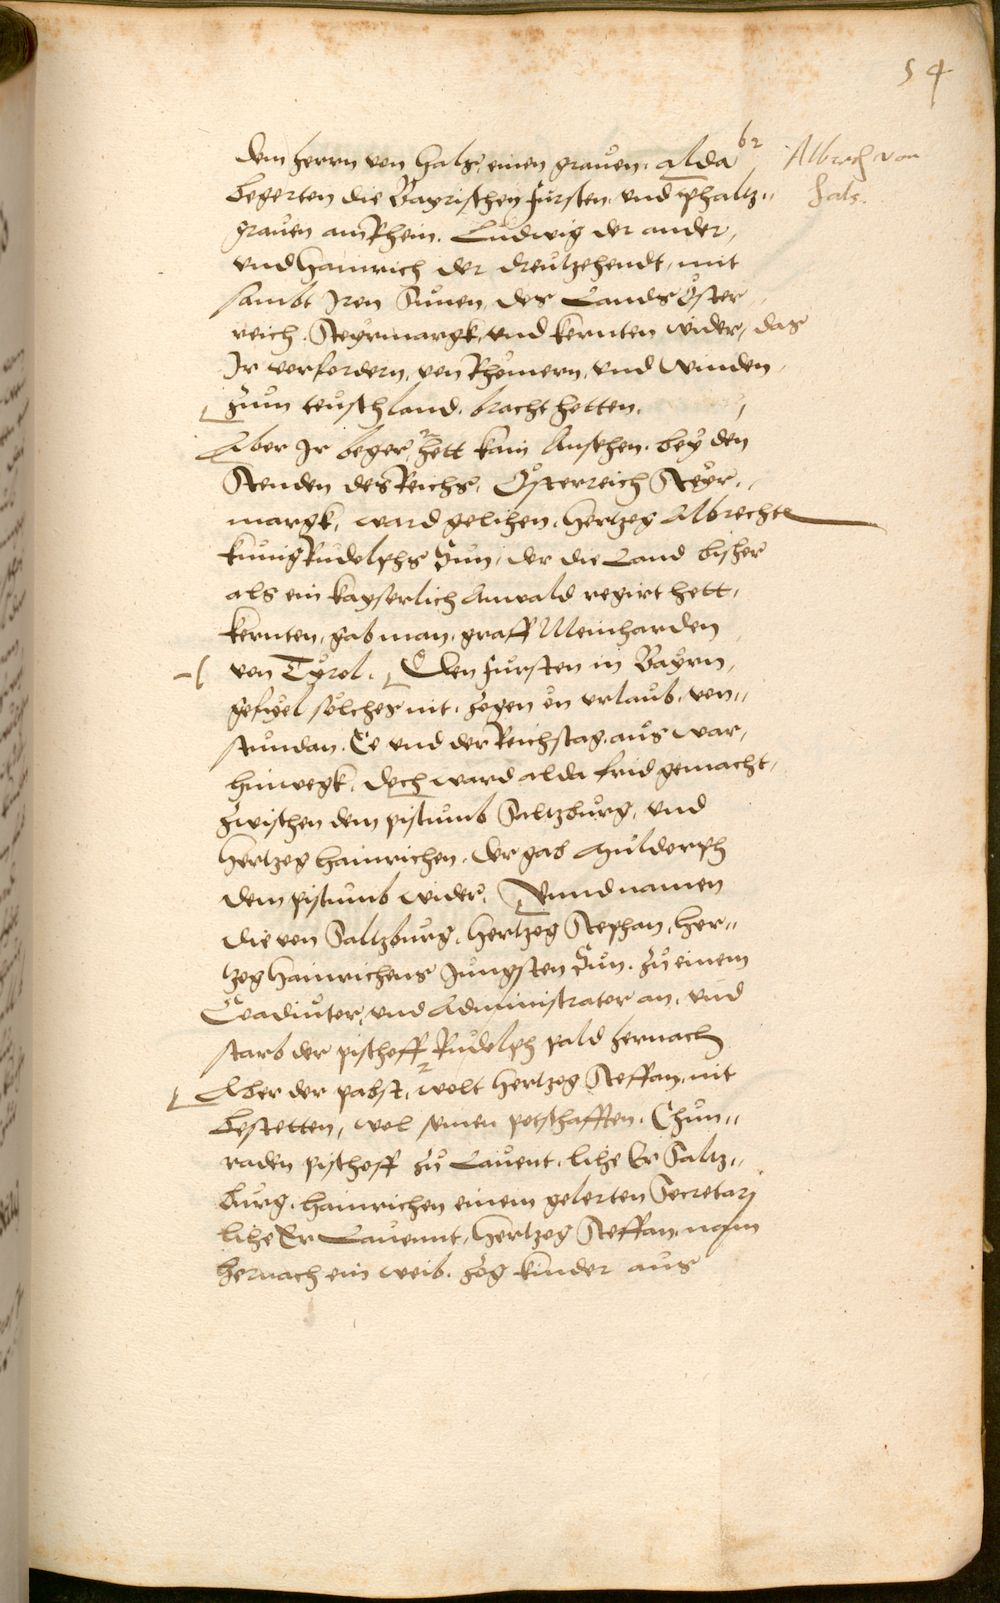 54
dem herrn von Hals, einen grauen. alda 62
Albrech von
Hals.
begerten die Bayrischen fürsten, vnd phaltz„
grauen am Rhein. Ludwig der ander,
vnd Hainrich der dreutzehendt, mit
sambt Iren Sunen, des Lands Öster„
reich. Steyrmargk, vnd kernten wider, das
Ir vorfordern, von Rhömern, vnd Winden,
zum teutschland, bracht hetten.
Aber Ir beger, hett kain Ansehen. bey den
Stenden des Reichs, Österreich Steyr„
margk, ward gelihen, Hertzog Albrechte
kunig Rudolphs Sun, der die Land bisher
als ein kayserlich Anwald regirt hett,
kernten, gab man, graff Meinharden
von Tyrol. Den fursten in Bayrn,
gefiel solches nit, zogen on vrlaub, von„
stundan. Ee vnd der Reichstag, aus war,
hinwegk, doch ward alda frid gemacht,
zwischen dem pistumb Saltzburg, vnd
Hertzog Hainrichen, der gab Muldorph
dem pistumb wider. Vnnd namen
die von Saltzburg, Hertzog Stephan, Her„
tzog Hainrichens Jungsten Sun, zu einem
Coadiutor, vnd Administrator an, vnd
starb der pischoff Rudolph pald hernach
Aber der pabst, wolt Hertzog Steffan, nit
bestetten, wol seinen potschafften. Chun„
raden pischoff zu Lauent, lihe Er Saltz„
burg. Hainrichen einem gelerten Secretarj
lihe Er Lauennt, Hertzog Steffan, nam
hernach ein weib. zog kinder aus